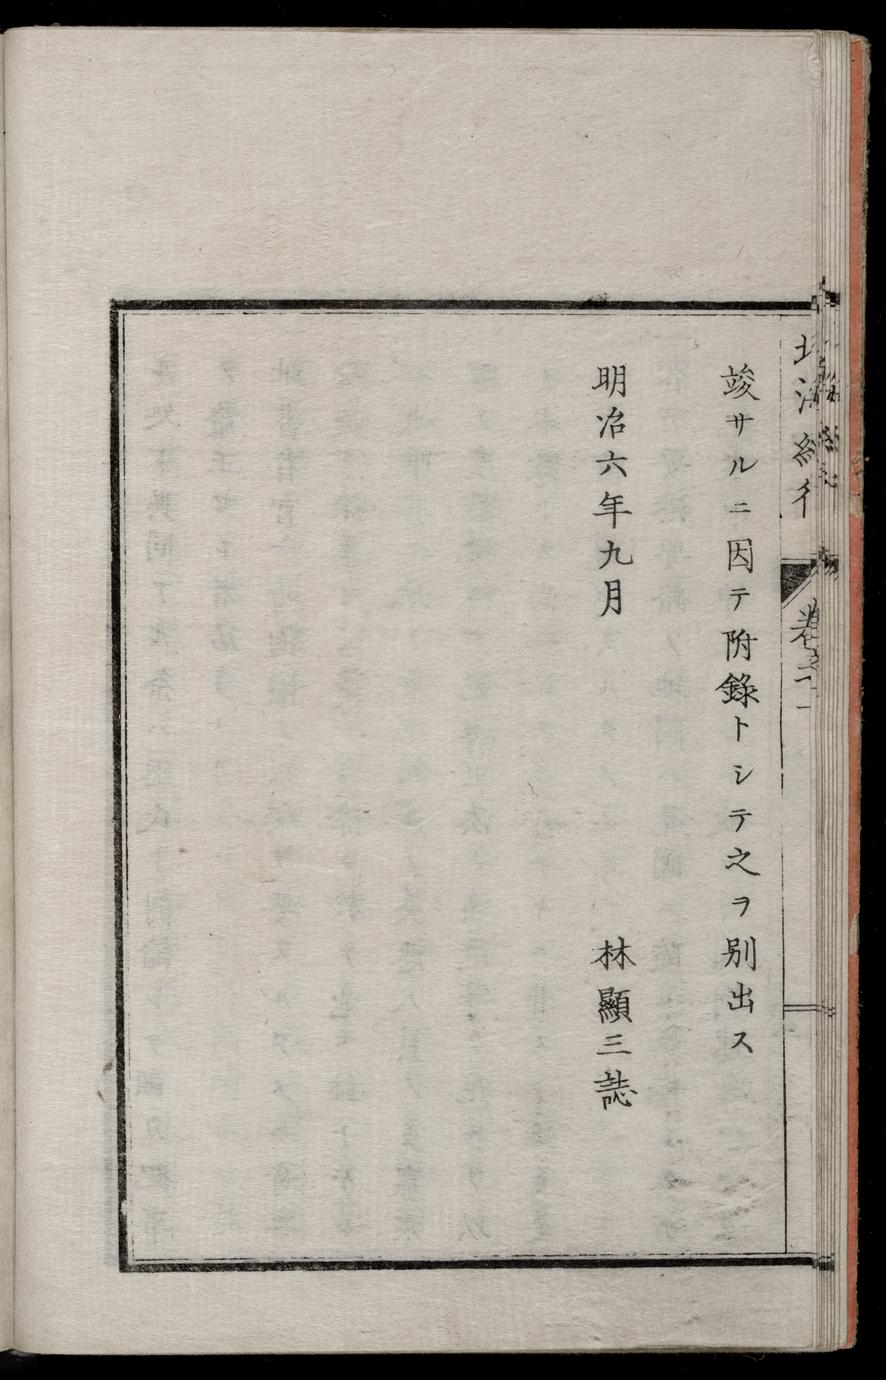 竣サルニ因テ附錄トシテ之ヲ别出ス
明治六年九月　林顯三誌
北海紀行